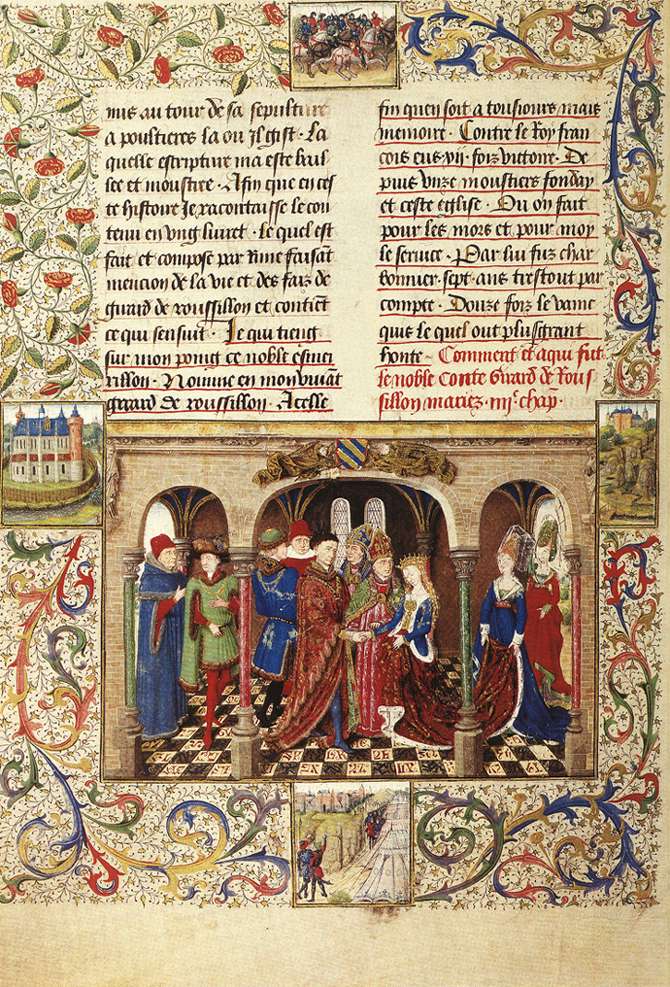 mis au tour de sa sepulture
a poultieres la ou Il gist . La
quelle escripture ma este bail
lee et moustree . Afin que en ces
te histoire Je racontaisse le con
tenu en vng liuret . le quel est
fait et compose par Rime faisant
mencion de la vie et des faiz de
guard de roussillon et contient
ce qui sensuit . Je qui tieng
sur mon poing ce noble esmeri
rillon . Nomme en mon viuant
gerard de roussillon . A ceste
fin quen soit a tousiours mais
memoire . Contre le Roy fran
cois eus . vij . foiz victoire . De
puis vnze moustiers fonday
et ceste eglise . Ou on fait
pour les mors et pour moy
le seruice . Par lui fuz char
bonnier . sept . ans trestout par
compte . Douze foiz le vainc
quis le quel out plus grant
honte ~ Comment et a qui fut
le noble Conte Girard de Rous
sillon mariez . iiij.e chap .